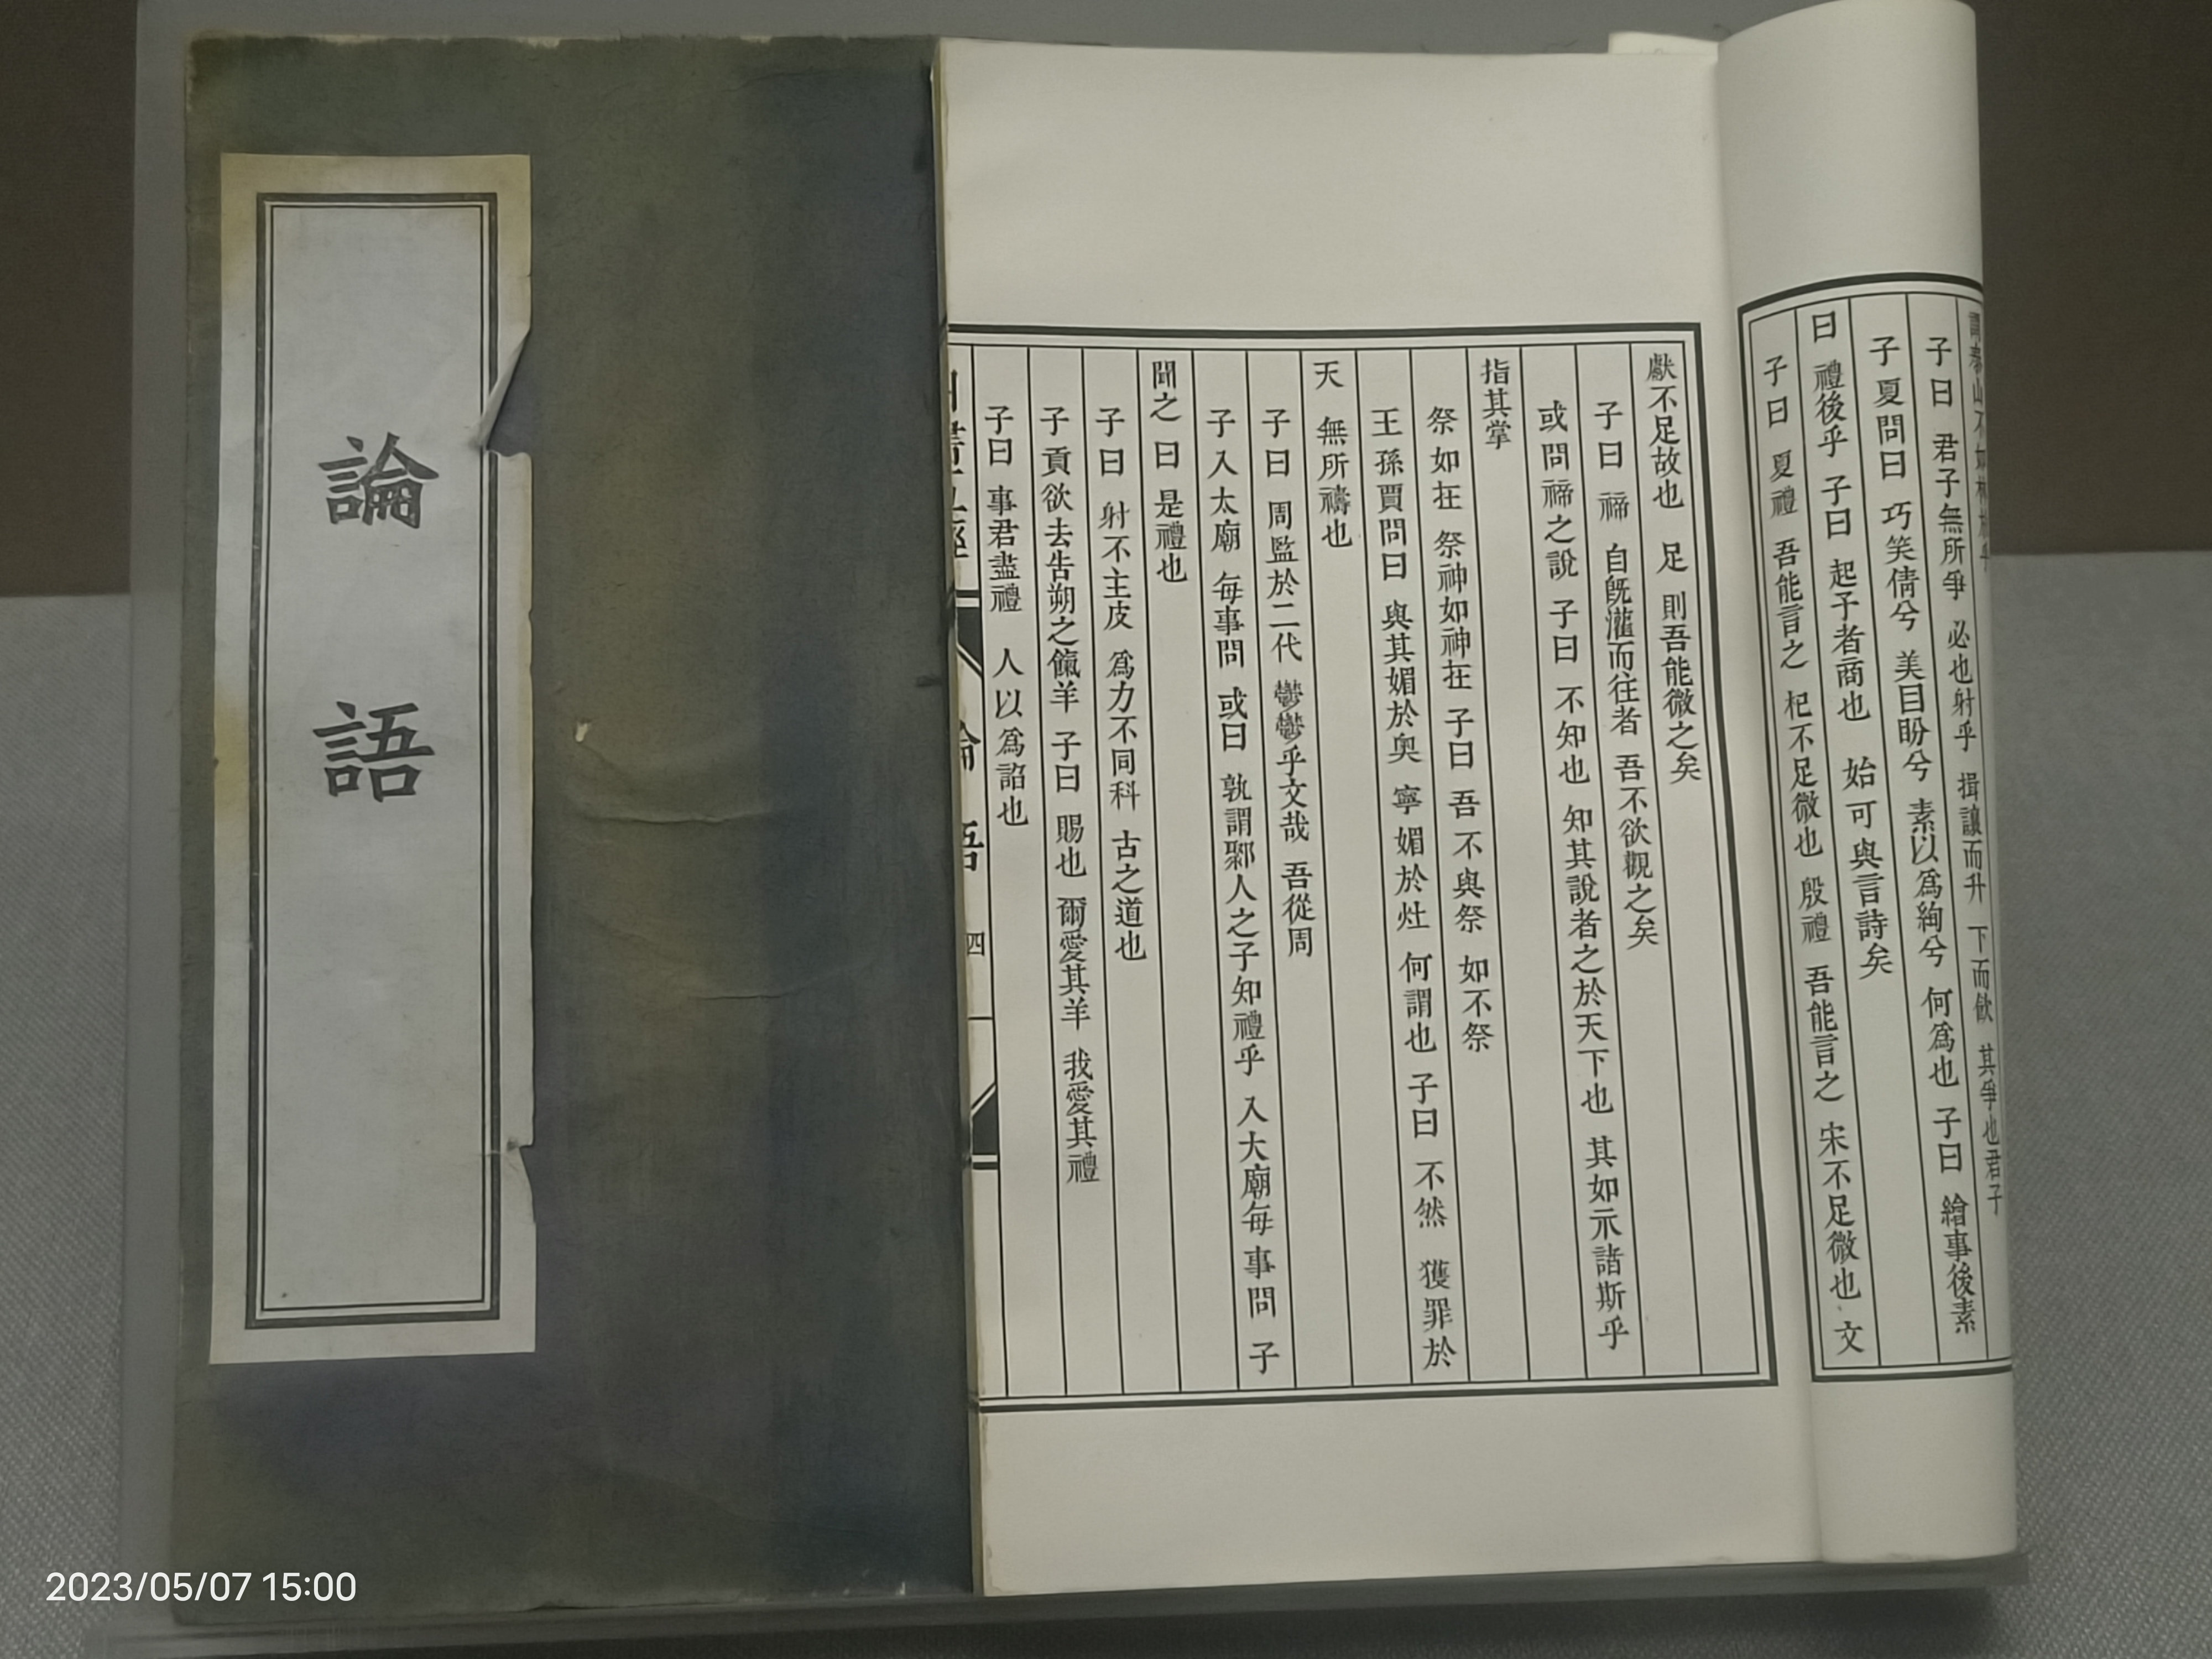 論語
子曰 君子無所爭 必也射乎 揖讓而升 下而飲 其爭也君子
子夏問曰 巧笑倩兮 美目盼兮 素以爲絢兮 何爲也 子曰 繪事後素
曰 禮後乎 子曰 起予者商也 始可與言詩矣
子曰 夏禮 吾能言之 杞不足徵也 殷禮 吾能言之 宋不足徵也 文
獻不足故也 足 則吾能徵之矣
子曰 禘 自旣灌而往者 吾不欲觀之矣
或問禘之說 子曰 不知也 知其說者之於天下也 其如示諸斯乎
指其掌
祭如在 祭神如神在 子曰 吾不與祭 如不祭
王孫賈問曰 與其媚於奧 寧媚於灶 何謂也 子曰 不然 獲罪於
天 無所禱也
子曰 周監於二代 鬱鬱乎文哉 吾從周
子入太廟 每事問 或曰 孰謂鄹人之子知禮乎 入大廟每事問 子
聞之曰 是禮也
子曰 射不主皮 爲力不同科 古之道也
子貢欲去告朔之餼羊 子曰 賜也 爾愛其羊 我愛其禮
子曰 事君盡禮 人以爲諂也
四
2023/05/07 15:00